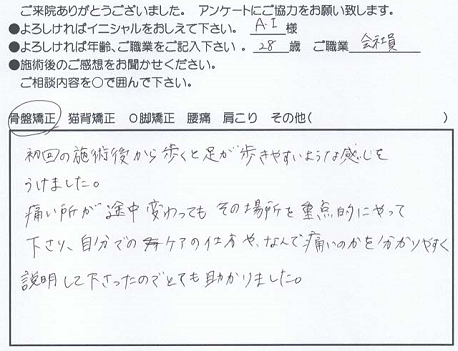 ご来院ありがとうございました。 アンケートにご協力をお願い致します。
●よろしければイニシャルをおしえて下さい。 A.I 様
●よろしければ年齢、ご職業をご記入下さい。 28 歳 ご職業 会社員
●施術後のご感想をお聞かせください。
ご相談内容を○で囲んで下さい。
骨盤矯正 猫背矯正 O脚矯正 腰痛 肩こり その他( )
初回の施術後から歩くと足が歩きやすいような感じを
うけました。
痛い所が途中変わってもその場所を重点的にやって
下さり、自分でのケアの仕方や、なんで痛いのかを分かりやすく
説明して下さったのでとても助かりました。